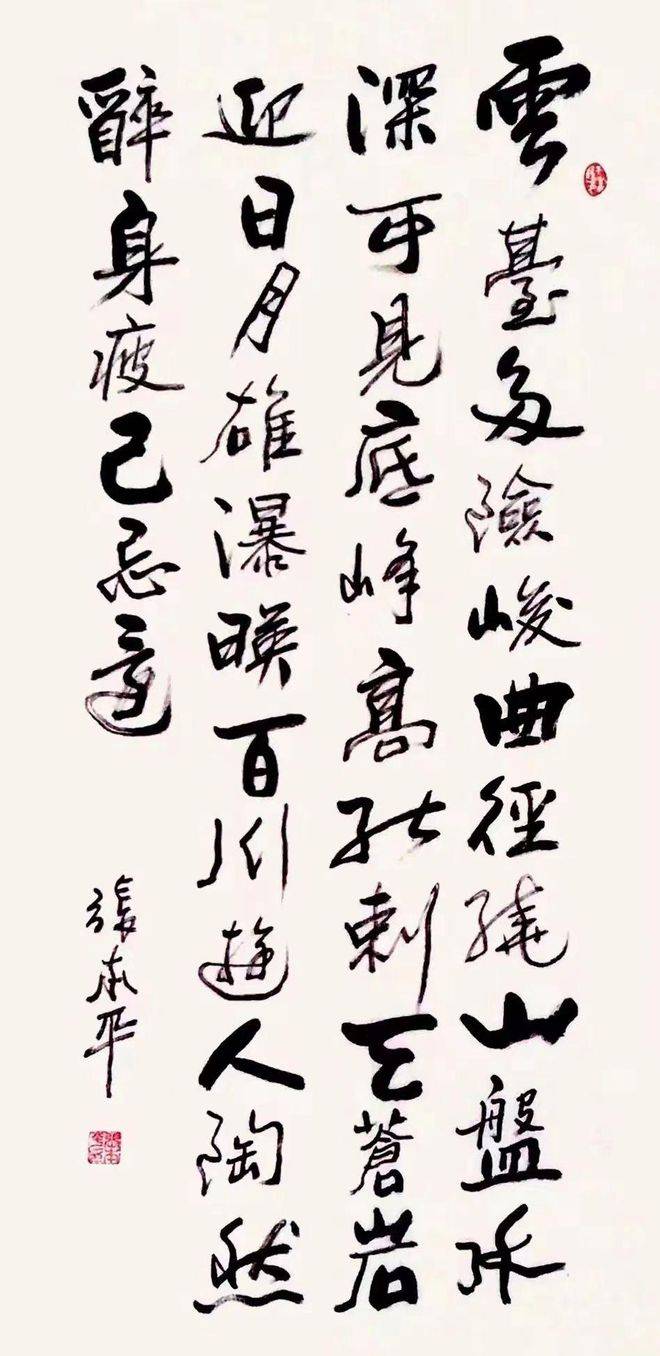 雲臺多險峻曲徑繞山盤水
深可見底峰高能刺天蒼岩
迎日月雄瀑暎百川遊人陶然
醉身疲己忘還
張本平